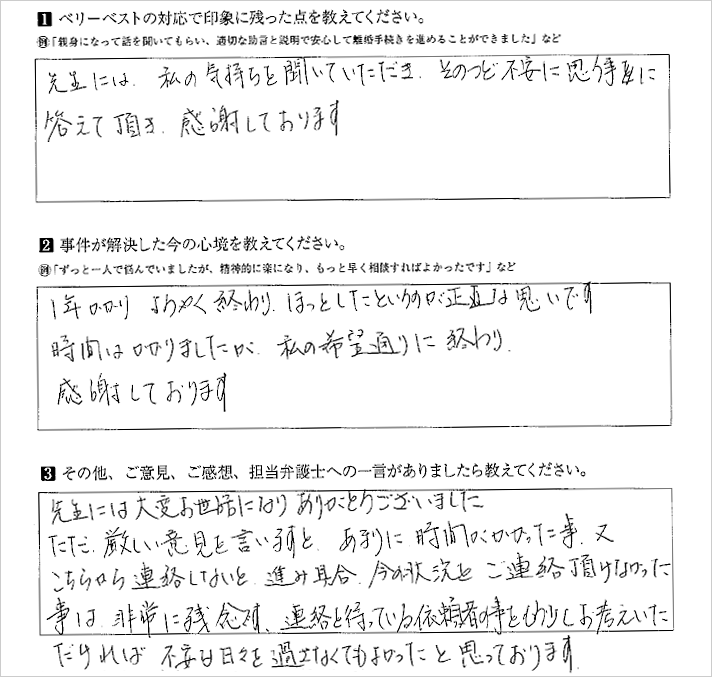 1 ベリーベストの対応で印象に残った点を教えてください。
例「親身になって話を聞いてもらい、適切な助言と説明で安心して離婚手続きを進めることができました」など
先生には、私の気持ちを聞いていただき、そのつど不安に思う事に
答えて頂き、感謝しております
2 事件が解決した今の心境を教えてください。
例「ずっと一人で悩んでいましたが、精神的に楽になり、もっと早く相談すればよかったです」など
1年かかり ようやく終わり、ほっとしたというのが正直な思いです
時間はかかりましたが、私の希望通りに終わり、
感謝しております
3 その他、ご意見、ご感想、担当弁護士への一言がありましたら教えてください。
先生には大変お世話になりありがとうございました
ただ、厳しい意見を言いますと、あまりに時間がかかった事、又
こちらから連絡しないと、進み具合、今の状況を ご連絡頂けなかった
事は、非常に残念です、連絡を待っている依頼者の事をもう少しお考えいた
だければ 不安な日々を過さなくてもよかったと思っております